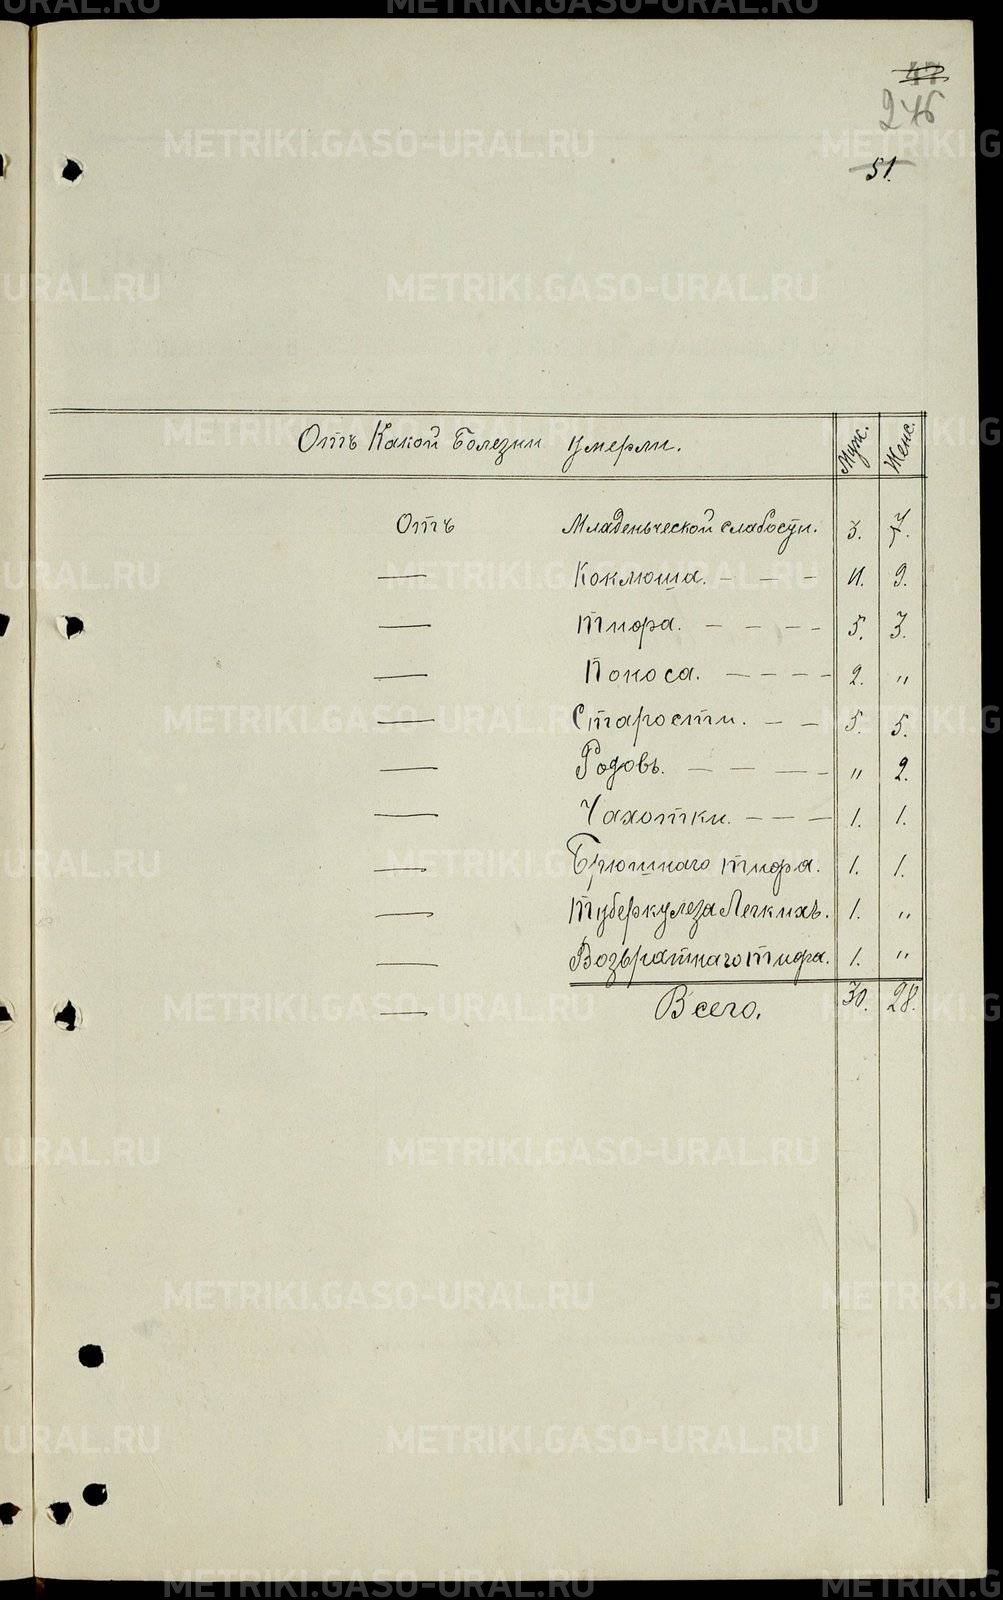 47
246
51.
Отъ Какой Болезни умерли. Муж. Женс.
Отъ Младенческой слабости. 3. 7.
— Коклюша. — — — 11. 9.
— Тифа. — — — — 5. 3.
— Поноса. — — — — 2. "
— Старости. — — 5. 5.
— Родовъ. — — — — " 2.
— Чахотки. — — — — 1. 1.
— Брюшнаго тифа. 1. 1.
— Туберкулеза Легкихъ. 1. "
— Возвратнаго тифа. 1. "
— Всего. 30. 28.
METRIKI.GASO-URAL.RU